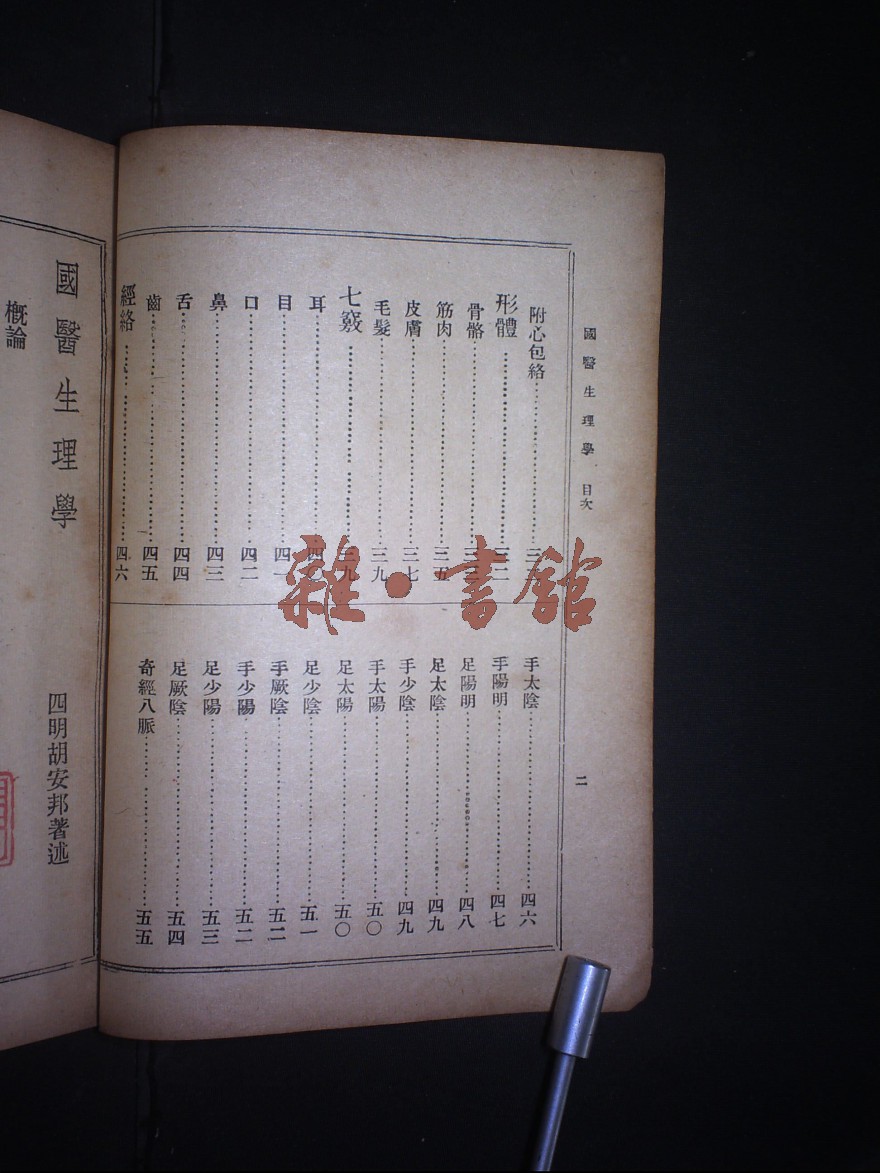 國醫生理學 目次
二
附心包絡
形體
骨骼
筋肉 三五
皮膚 三七
毛髮 三九
七竅 三九
耳 四〇
目 四一
口 四二
鼻 四三
舌 四四
齒 四五
經絡 四六
手太陰 四六
手陽明 四七
足陽明 四八
足太陰 四九
手少陰 四九
手太陽 五〇
足太陽 五〇
足少陰 五一
手厥陰 五二
手少陽 五二
足少陽 五三
足厥陰 五四
奇經八脈 五五
國醫生理學
四明胡安邦著述
概論
雜·書館